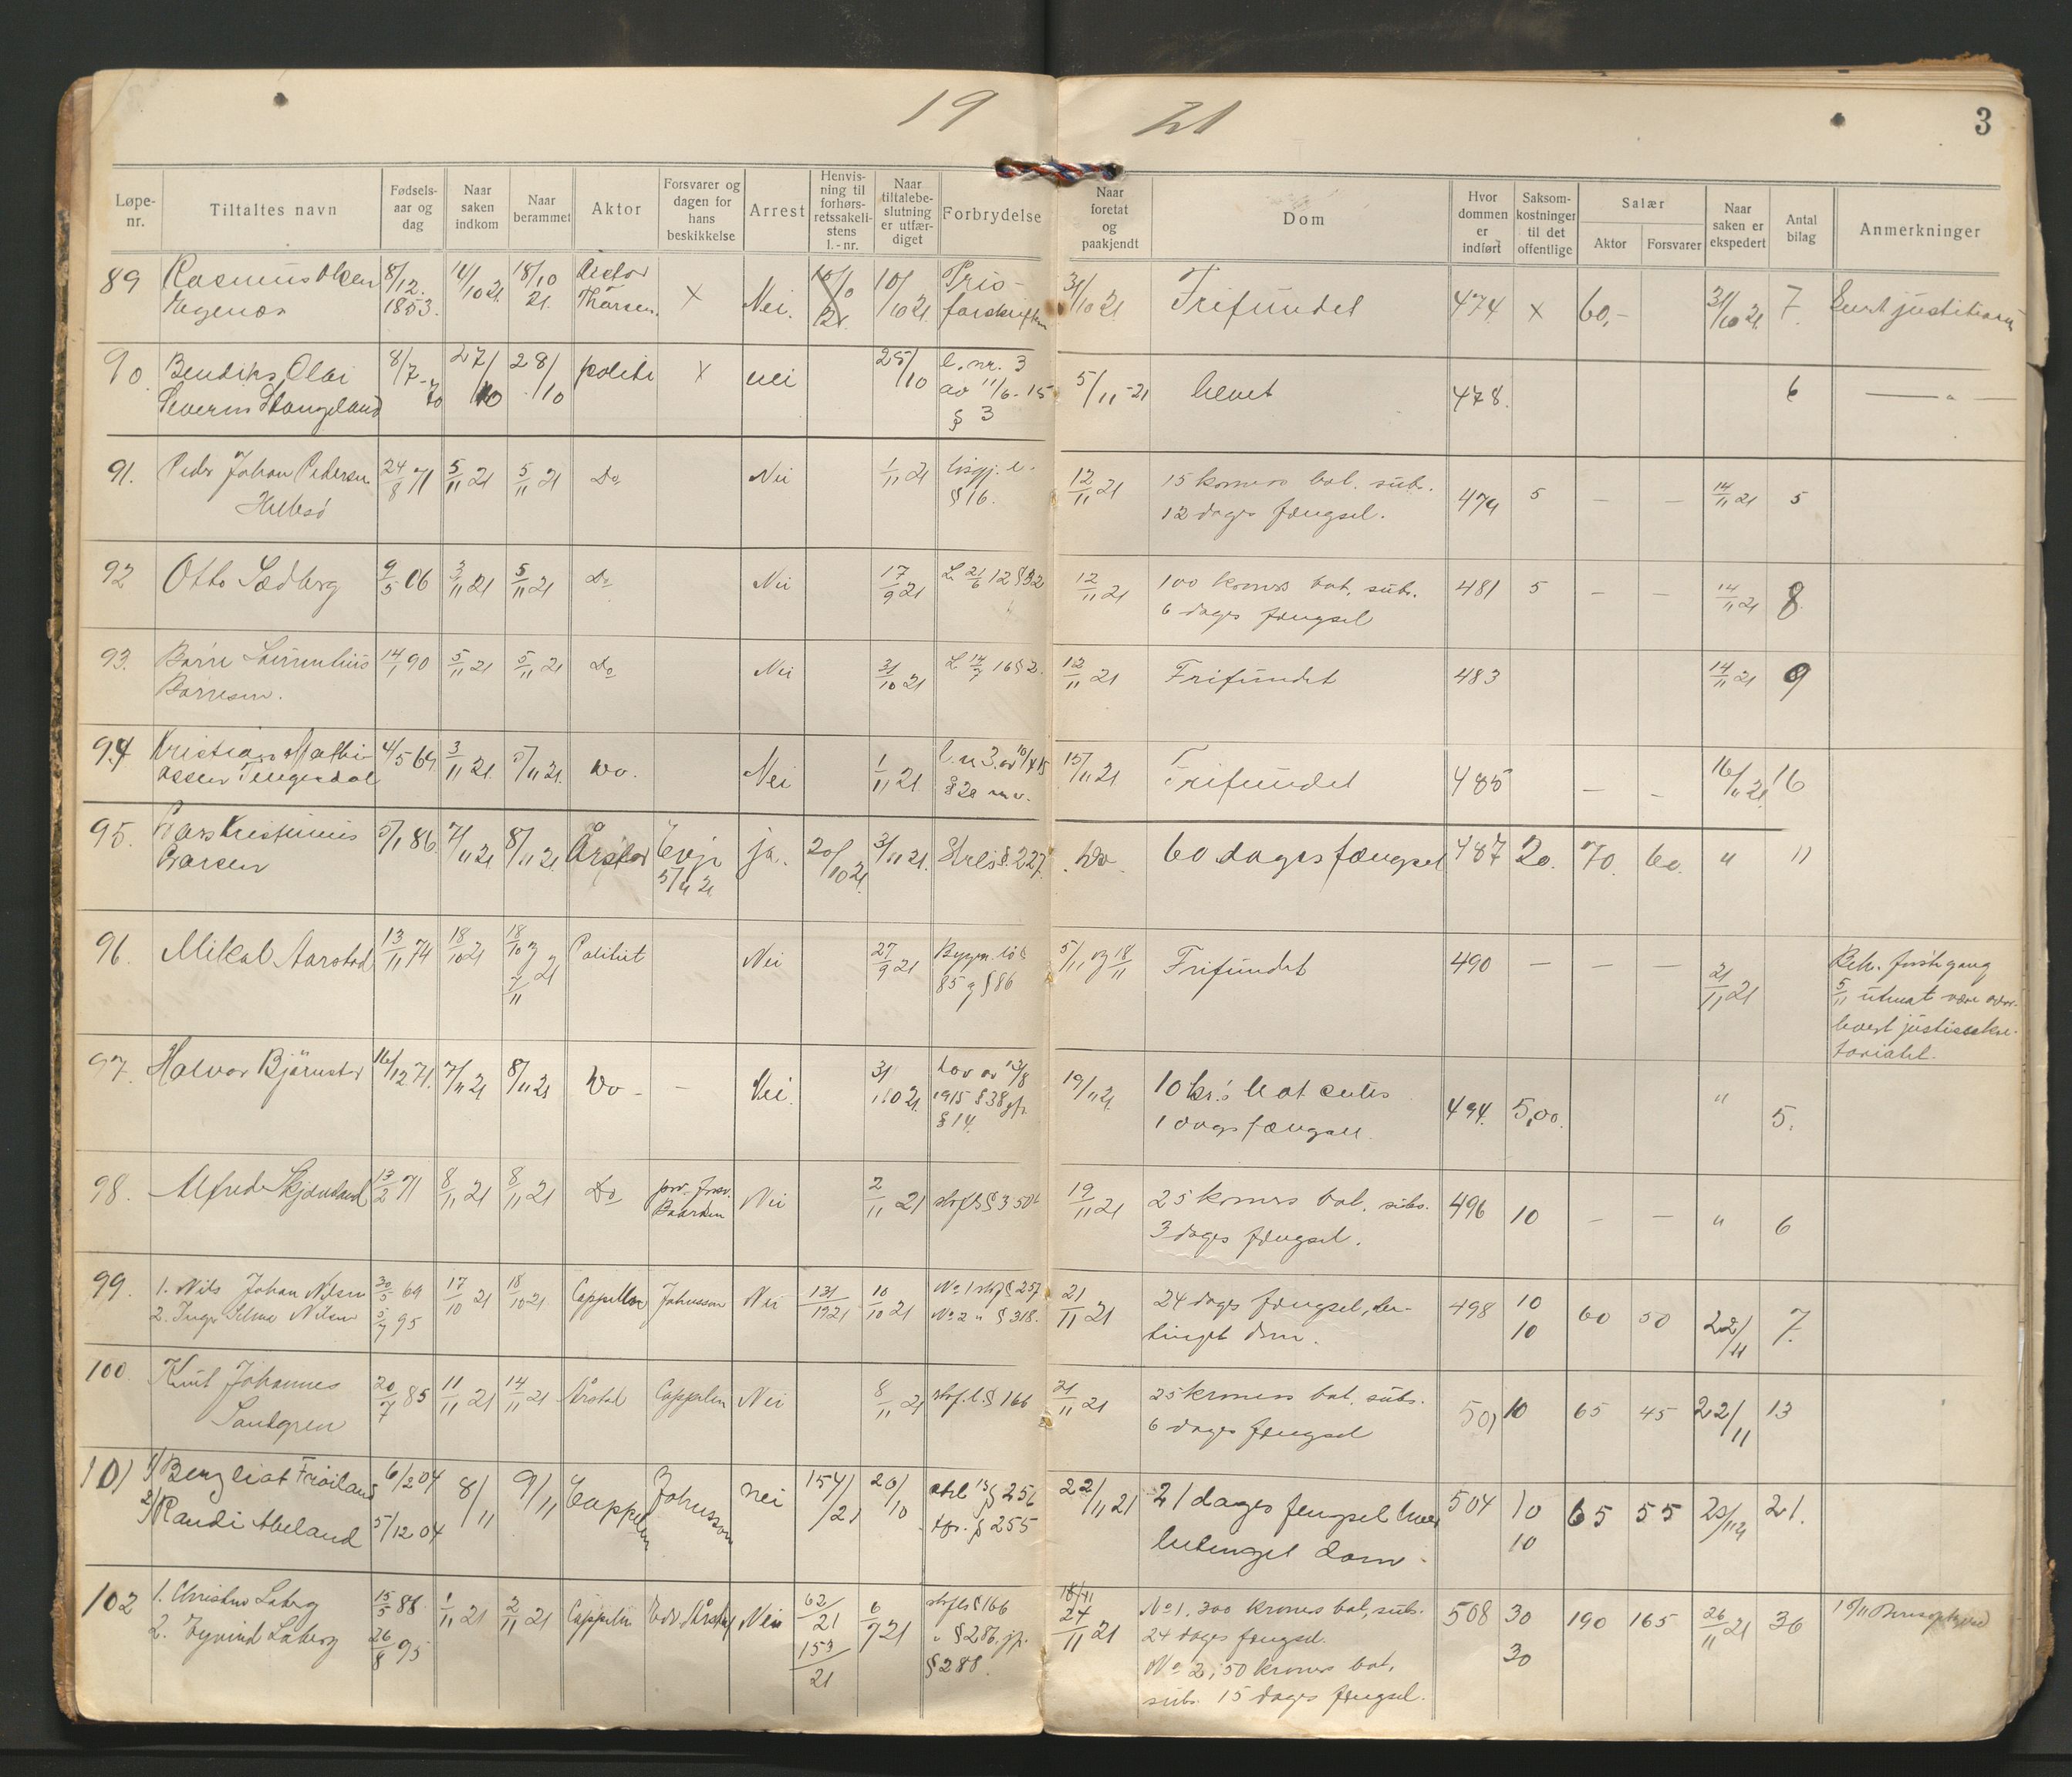 19 21
3
Løpe-nr. Tiltaltes navn Fødsels-aar og dag Naar saken indkom Naar berammet Aktor Forsvarer og dagen for hans beskikkelse Arrest Henvis-ning til forhørs-retssakeli-stens l.-nr. Naar tiltalebe-slutning er utfær-diget Forbrydelse Naar foretat og paakjendt Dom Hvor dommen er indført Saksom-kostninger til det offentlige Salær Aktor Forsvarer Naar saken er ekspedert Antal bilag Anmerkninger
89 Rasmus Olsen 8/12. 1853. 14/10 21 18/10 21. Thorsen. x Nei. 10/10 21. Pris- 31/10 21. Frifundet 474 x 60,- 31/10 21 7.
90. Bendiks Olai 8/7-70 27/10 28/10 politi x nei 25/10 l. nr. 3 5/11-21 478. 6
Severin Stangeland av 11/6-15
§ 3
91. Peder Johan Pedersen 24/8 71 5/11 21 5/11 21 Do Nei 1/11 21 12/11 21 15 kroners bot. subs. 479 5 — — 14/11 21 5
§ 16. 12 dages fængsel.
92 Otto Sædberg 9/5 06 3/11 21 5/11 21 Do Nei 17/9 21 L 21/6 12 § 32 12/11 21 100 kroners bot, subs. 481 5 — — 14/11 21 8
6 dages fængsel
93. Børre 14/1 90 5/11 21 5/11 21 Do Nei 31/10 21 L 14/7 16 § 2. 12/11 21 Frifundet 483 14/11 21 9
Børresen.
94 Kristian Mathi- 4/5 69 3/11 21 5/11 21. Do. Nei 1/11 21 15/11 21 Frifundet 485 — — 16/11 21 16
assen Tengesdal
95. Lars Kristinius 5/1 86 7/11 21 8/11 21. Årstad Evje ja. 20/10 21. 3/11 21. Strl. § 227. Do. 60 dages fængsel 487 20. 70. 60. " 11
Larsen 5/11 21
96. Mikal Aarstad 13/11 74 18/10 21 18/10 og 7/11 21 Politiet Nei 27/9 21 Bygn. lov 5/11 og 18/11 Frifundet 490 — — — 21/11 21 Beh. første gang
85 og § 86 5/11
97. Halvor Bjørnstad 16/12 71. 7/11 21 8/11 21 Do - — Nei. 31/10 21. Lov av 13/8 19/11 21. 10 kr.s bot subs 494. 5,00. " 5.
1915 § 38 jfr. 1 dags fængsel.
§ 14.
98. Alfred Skjæveland 13/2 71 8/11 21 8/11 21 Do Nei 2/11 21 strfl. § 350 19/11 21 25 kroners bot, subs. 496 10 — — " 6
3 dages fængsel.
99. 1. Nils Johan Nilsen 30/5 69 17/10 21 18/10 21 Cappelen Johnsson Nei 131/1921 10/10 21 No 1 strfl § 257 21/11 21 24 dages fængsel, be- 498 10 60 50 22/11 7.
2. Inger Selma Nilsen 5/7 95 No 2 " § 318. tinget dom. 10
100. Knut Johannes 20/7 85 11/11 21 14/11 21 Årstad Cappelen Nei 8/11 21 strf. l. § 166 21/11 21 25 kroners bot. subs. 501 10 65 45 22/11 13
Sandgren 6 dages fængsel
101 1/ Bergliot Frøiland 6/2 04 8/11 9/11 Cappelen Johnsson nei 154/21 20/10 strl § 256 22/11 21 21 dages fengsel hver 504 10 65 55 21.
2/ Randi Abeland 5/12 04 jfr. § 255 betinget dom. 10
102 1. Christine Laberg 15/5 86 1/11 21 2/11 21 Cappelen Årstad Nei 62/21 6/7 21 strfl § 166 18/11 No 1. 300 kroners bot, subs. 508 30 190 165 26/11 21 36
2. Eyvind Laberg 26/8 95 153/21 " § 286, jfr. 24/11 21 24 dages fængsel. 30
§ 288. No 2, 50 kroners bot,
subs. 15 dages fængsel.